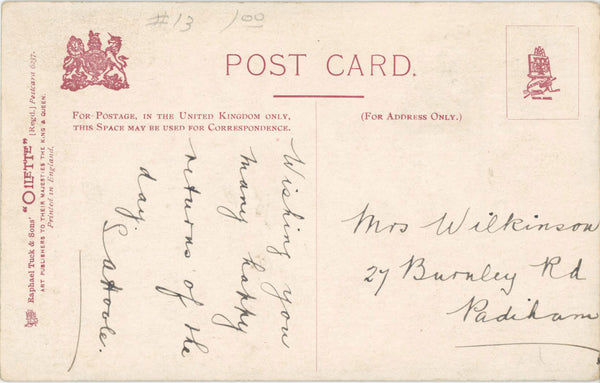 #13 100
POST CARD.
FOR POSTAGE, IN THE UNITED KINGDOM ONLY,
THIS SPACE MAY BE USED FOR CORRESPONDENCE.
(FOR ADDRESS ONLY.)
Raphael Tuck & Sons' "OILETTE" [Regd.] Postcard 6097.
ART PUBLISHERS TO THEIR MAJESTIES THE KING & QUEEN.
Printed in England.
Wishing you
many happy
returns of the
day.
Mrs Wilkinson
27 Burnley Rd
Padiham